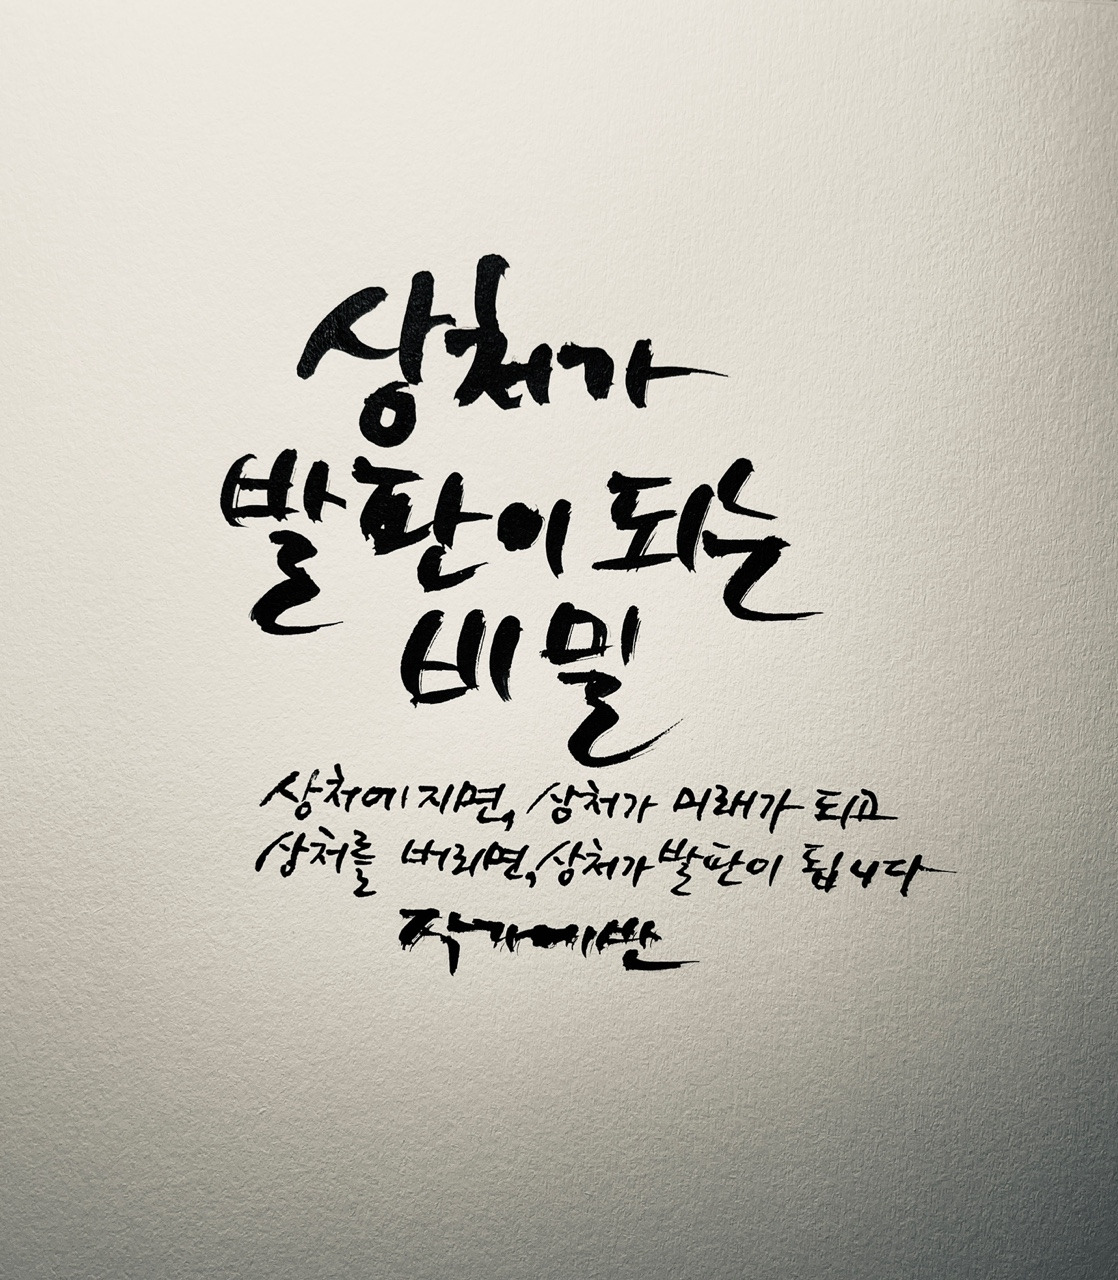 상처가
발판이 되는
비밀
상처에 지면, 상처가 미래가 되고
상처를 버리면, 상처가 발판이 됩니다
작가